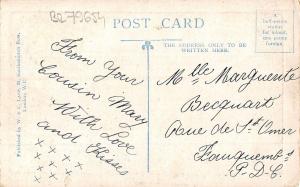 BR79654
POST CARD
A
half-penny
stamp
for inland,
one penny
foreign.
THE ADDRESS ONLY TO BE
WRITTEN HERE.
From Your
Cousin Mary
With Love
and Kisses
x x x x
x x x x
x x x
Melle Marguerite
Becquart
Rue de St Omer
Fauquembs
P.D.C.